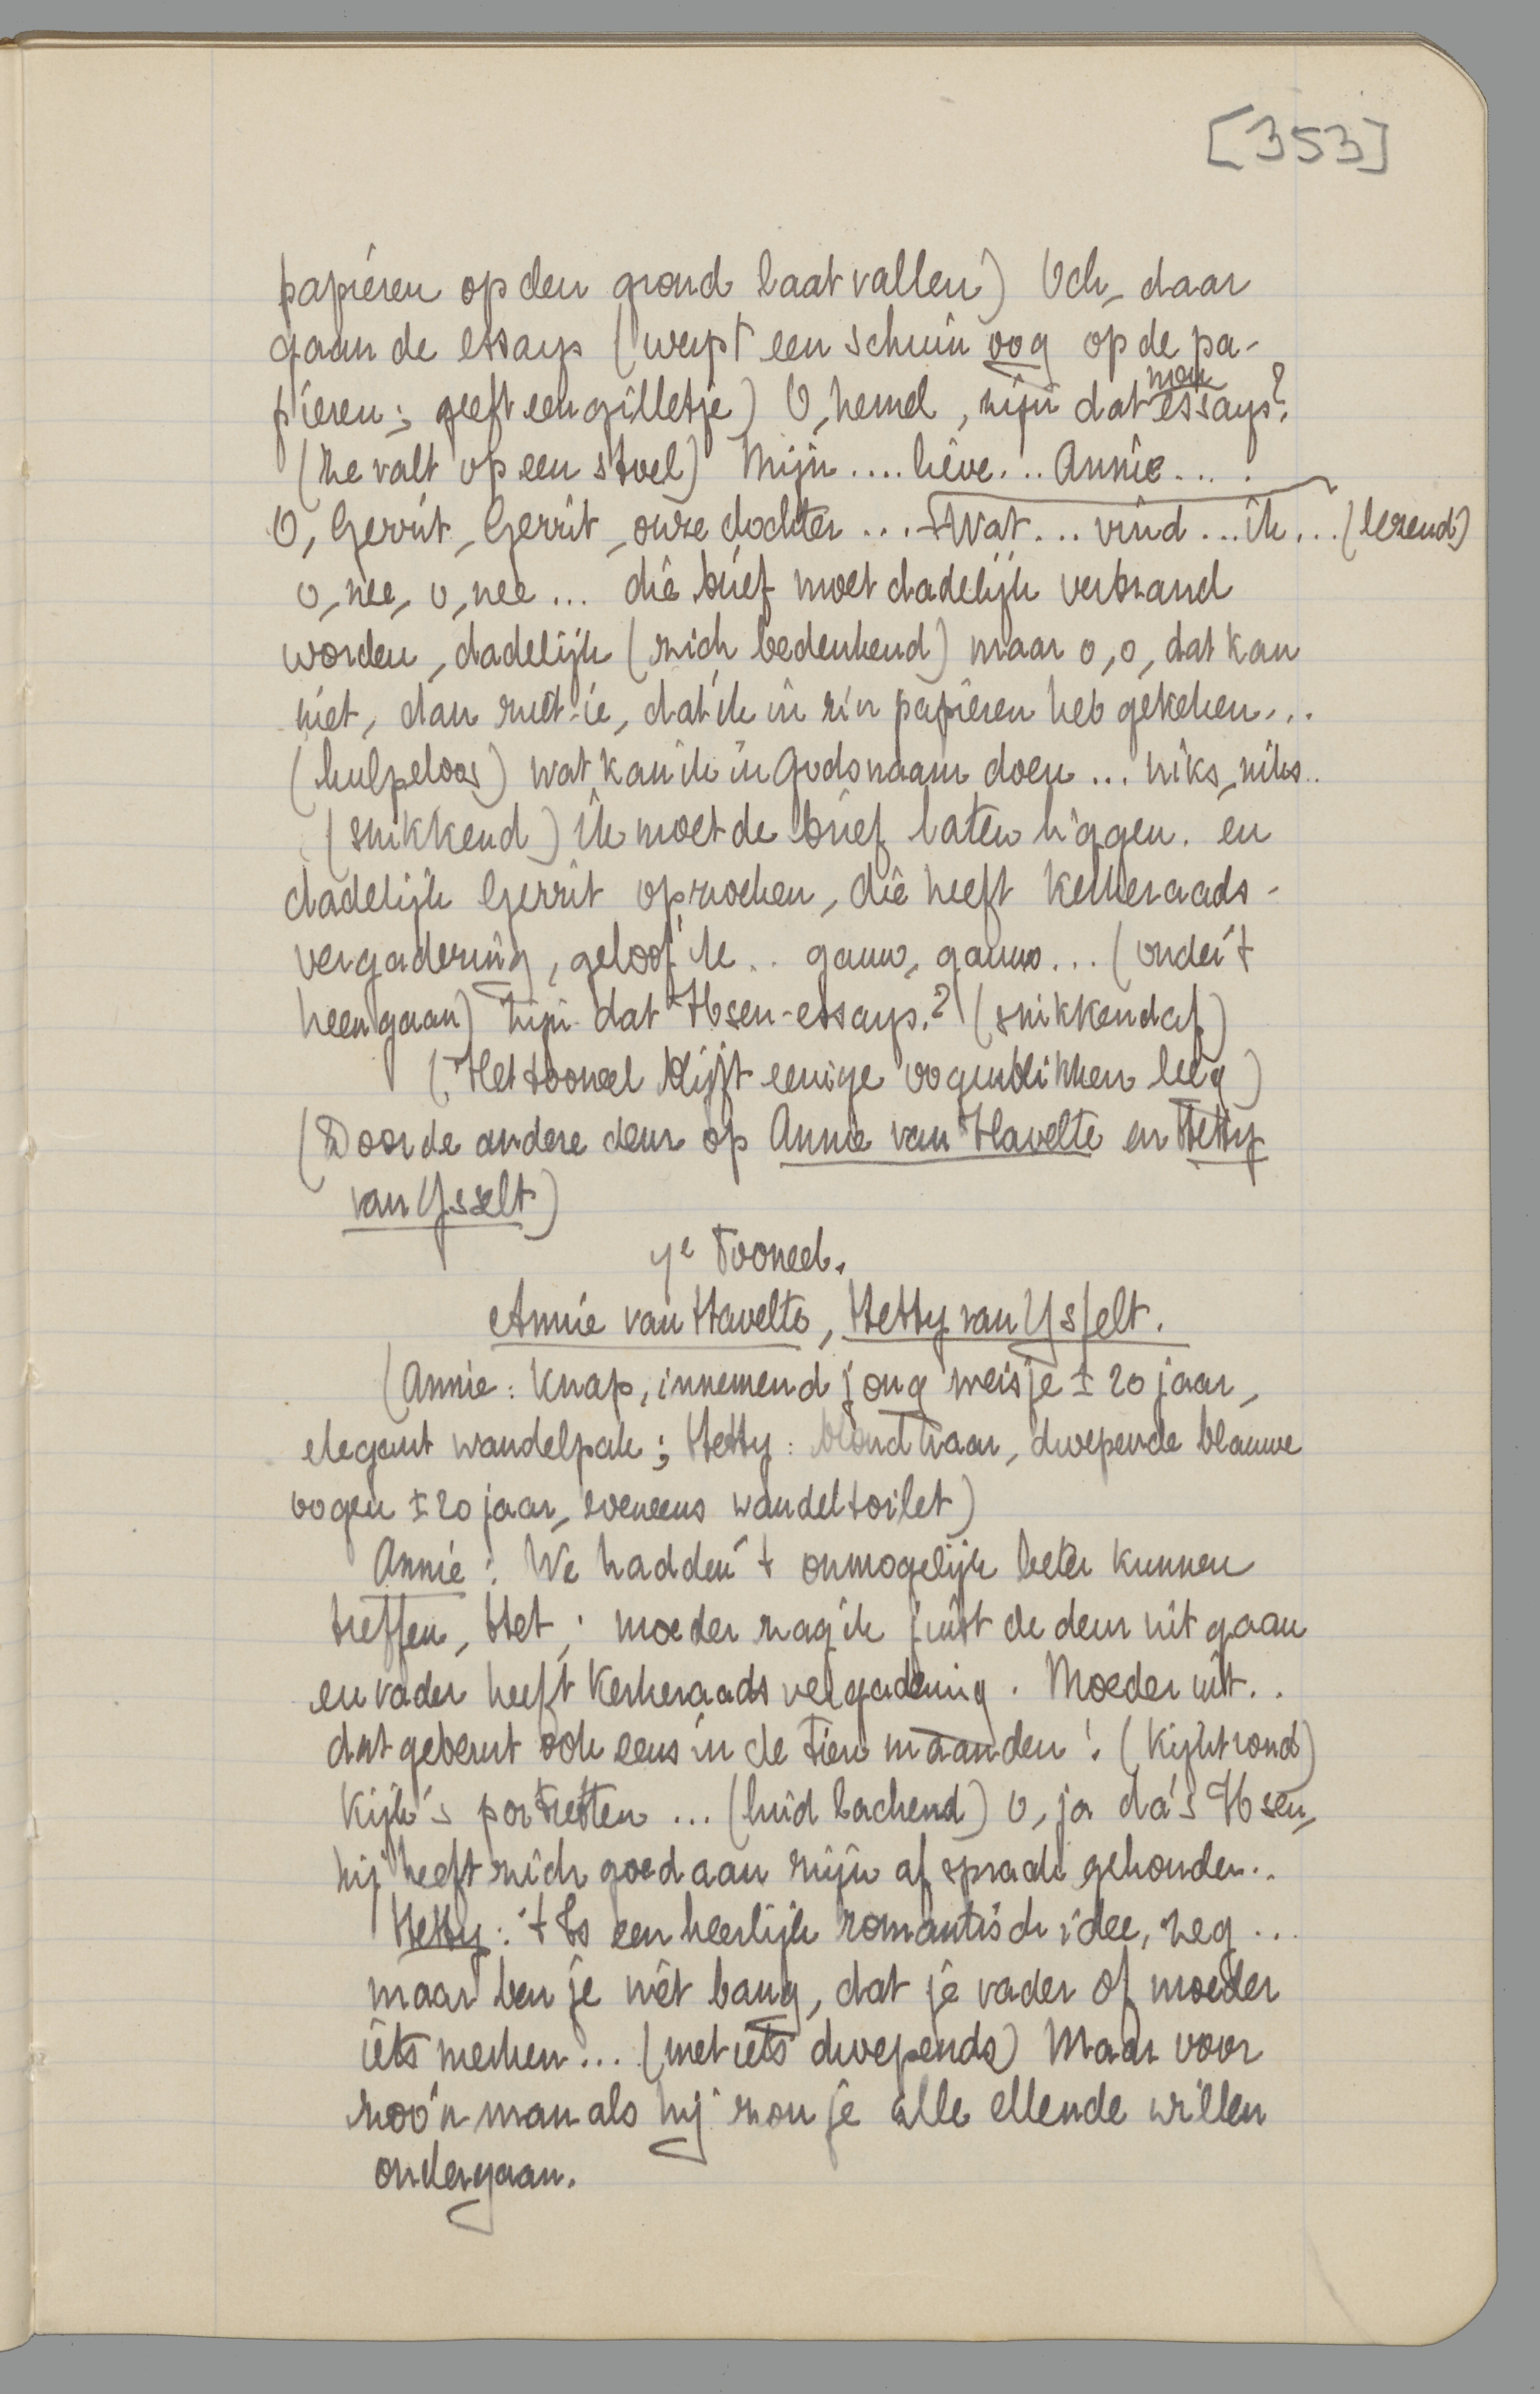 [353]
papieren op den grond laat vallen) Och, daar
gaan de essays (werpt een schuin oog op de pa-
pieren; geeft een gilletje) O, hemel, zijn dat nou essays?
(ze valt op een stoel) Mijn .... lieve... Annie....
O, Gerrit, Gerrit, onze dochter ... Wat ... vind ... ik ... (lezend)
o, nee, o, nee ... die brief moet dadelijk verbrand
worden, dadelijk (zich bedenkend) maar o, o, dat kan
niet, dan ziet-ie, dat ik in z'n papieren heb gekeken...
(hulpeloos) wat kan ik in Godsnaam doen ... niks, niks..
(snikkend) ik moet de brief laten liggen. en
dadelijk Gerrit opzoeken, die heeft kerkeraads-
vergadering, geloof 'k .. gauw, gauw ... (onder 't
heengaan) Zijn dat Ibsen-essays? (snikkend af)
(Het tooneel blijft eenige oogenblikken leeg)
(Door de andere deur op Annie van Havelte en Hetty
van Ysselt)
4e Tooneel.
Annie van Havelte, Hetty van Ysselt.
(Annie: knap, innemend jong meisje ± 20 jaar,
elegant wandelpak; Hetty: blond haar, dwepende blauwe
oogen ± 20 jaar, eveneens wandeltoilet)
Annie: We hadden 't onmogelijk beter kunnen
treffen, Het; moeder zag ik juist de deur uit gaan
en vader heeft kerkeraadsvergadering. Moeder uit..
dat gebeurt ook eens in de tien maanden! (Kijkt rond)
Kijk 's portretten ... (luid lachend) O, ja da's Ibsen,
hij heeft zich goed aan zijn afspraak gehouden..
Hetty: 't Is een heerlijk romantisch idee, zeg ...
maar ben je niet bang, dat je vader of moeder
iets merken ... (met iets dwepends) Maar voor
zoo'n man als hij zou je alle ellende willen
ondergaan.